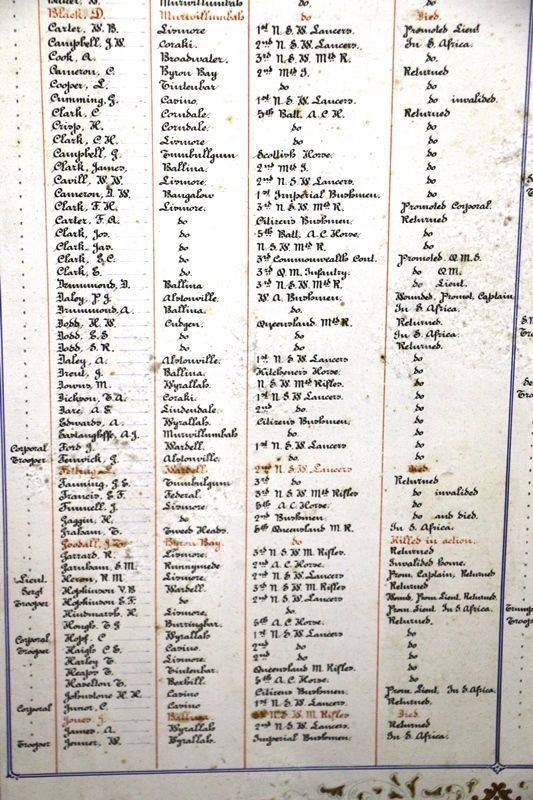 Murwillumbah do. do
Black, D. Murwillumbah do. Died.
Carter, W. B. Lismore 1st N. S. W. Lancers. Promoted Lieut
Campbell, J. W. Coraki. 2nd N. S. W. Lancers. In S. Africa.
Cook, A. Broadwater. 3rd N. S. W. Mtd R. do.
Cameron, C. Byron Bay 2nd Mtd I. Returned
Cooper, L. Tintenbar do do
Cumming, G. Casino 1st N. S. W. Lancers. do invalided.
Clark, C. Corndale. 5th Batt. A. C. H. Returned
Crisp, H. Corndale. do do
Clark, C. H. Lismore do do
Campbell, G. Tumbullgum Scottish Horse. do
Clark, James, Ballina. 2nd Mtd I. do
Cavill, W. W. Lismore. 2nd N. S. W. Lancers. do
Cameron, D. W. Bangalow 1st Imperial Bushmen. do
Clark, F. H. Lismore. 3rd N. S. W. Mtd R. Promoted Corporal.
Carter, F. A. do Citizen's Bushmen. Returned
Clark, Jos. do 5th Batt. A. C. Horse. do
Clark, Jas. do N. S. W. Mtd R. do
Clark, S. C. do 3rd Commonwealth Cont. Promoted. Q. M. S.
Clark, E. do 3rd Q. M. Infantry. do Q. M.
Drummond, D. Ballina 3rd N. S. W. Mtd R. do Lieut.
Daley, P. J. Alstonville. W. A. Bushmen. Wounded, Promot. Captain
Drummond, A. Ballina. do. In S. Africa.
Dodd, H. W. Cudgen. Queensland Mtd R. Returned.
Dodd, E. S. do do In S. Africa.
Dodd, S. R. do do Returned.
Daley, A. Alstonville. 1st N. S. W. Lancers do
Trent, J. Ballina. Kitchener's Horse. do
Downs, M. Wyrallah. N. S. W. Mtd Rifles. do
Dickson, T. A. Coraki. 1st N. S. W. Lancers do
Dare, A. E. Lindendale. 2nd do. do
Edwards, A. Wyrallah. Citizen's Bushmen, do
Eastaughffe, A. J. Murwillumbah do. do
Corporal Ford J. Wardell. 1st N. S. W. Lancers do
Trooper Fenwick, G. Alstonville. do. do
L. Wardell. 2nd N. S. W. Lancers Died
Fanning, J. E. Tumbulgum 3rd do Returned
Francis, E. F. Federal. 3rd N. S. W. Mtd Rifles do invalided
Funnell, J. Lismore. 5th A. C. Horse. do
Gaggin, H. do 2nd Bushmen do and died.
Graham, T. Tweed Heads. 6th Queensland M. R. In S. Africa.
Goodall, J. Byron Bay. do Killed in action.
Garrard, R. Lismore. 3rd N. S. W. M. Rifles. Returned
Garnham, E. M. Runnymede 2nd A. C. Horse. Invalided home.
Lieut. Heron, R. M. Lismore. 2nd N. S. W. Lancers Prom. Captain, Returned
Sergt Hopkinson V. B. Wardell. 3rd N. S. W. M. Rifles Returned
Trooper Hopkinson E. F. do 2nd N. S. W. Lancers Wound. Prom. Lieut. Returned.
Hindmarsh, H. Lismore, do. Prom. Lieut. In S. Africa.
Hough, T. G. Burringbar. 5th A. C. Horse. Returned.
Corporal Hopf. C. Wyrallah 1st N. S. W. Lancers do
Trooper Haigh C. E. Casino. 2nd do do
Harley T. Lismore. 2nd do. do
Heaps T. Tintenbar. Queensland M. Rifles. do
Haselton T. Bexhill. 5th A. C. Horse. do
Johnstone H. H. Casino Citizens Bushmen. Prom. Lieut. In S. Africa.
Corporal Junor, C. Casino 1st N. S. W. Lancers. Returned.
Jones J. Ballina N. S. W. M. Rifles Died.
James, A. Wyrallah. 2nd N. S. W. Lancers. Returned
Trooper Jenner, W. Wyrallah. Imperial Bushmen. In S. Africa.